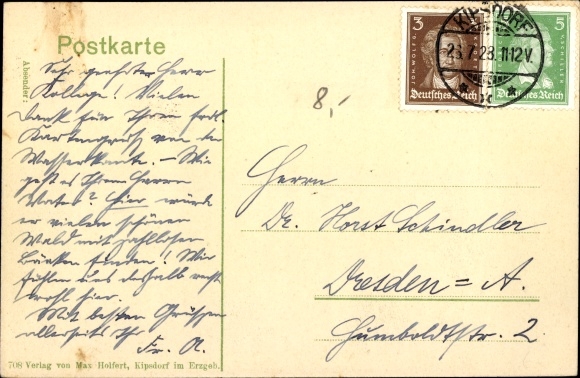 Postkarte
Absender:
Sehr geehrter Herr
Kollege! Vielen
Dank für Ihren frdl.
Kartengruß von der
Wasserkante. – Wie
geht es Ihrem Herrn
Vater? Hier würde
er vielen schönen
Wald mit zahllosen
Bänken finden! Wir
fühlen uns deshalb recht
wohl hier.
Mit besten Grüßen
allerseits Ihr
Fr. A.
708 Verlag von Max Holfert, Kipsdorf im Erzgeb.
8,-
3
JOH. WOLF. G.
Deutsches Reich
5
Deutsches Reich
KIPSDORF
23.7.28.11-12V.
Herrn
Dr. Horst Schindler
Dresden = A.
Humboldtstr. 2.